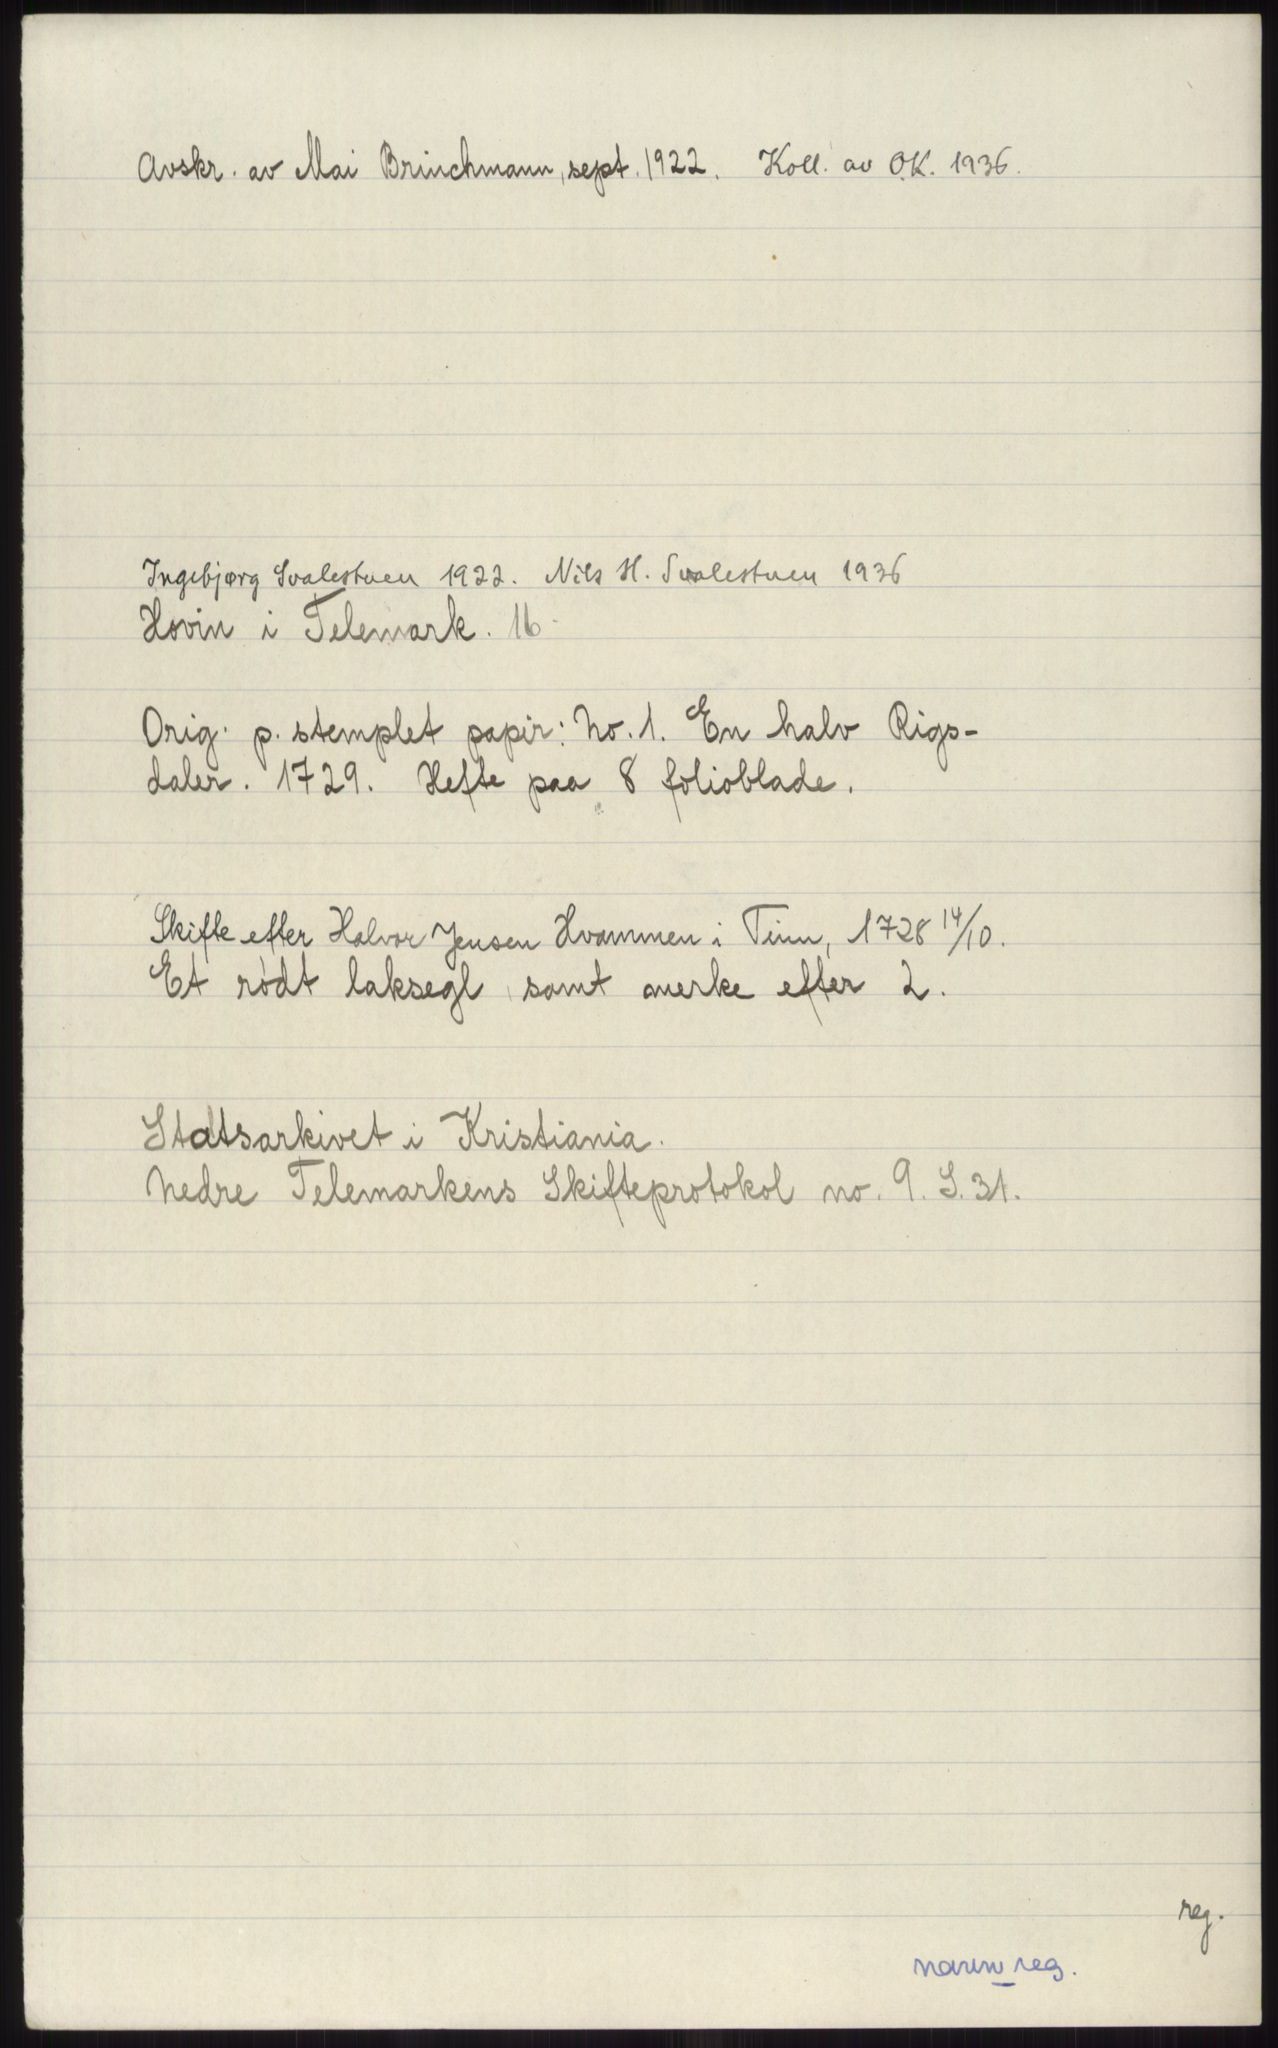 Avskr. av Mai Brinchmann, sept. 1922. Koll. av O.K. 1936.
Ingebjørg Svalestuen 1922. Nils H. Svalestuen 1936
Hovin i Telemark. 16.
Orig. p. stemplet papir: No. 1. En halv Rigs-
daler. 1729. Hefte paa 8 folioblade.
Skifte efter Halvor Jensen Hvammen i Tinn, 1728 14/10.
Et rødt laksegl samt merke efter 2.
Statsarkivet i Kristiania.
Nedre Telemarkens Skifteprotokol no. 9. S. 31.
reg.
navnreg.